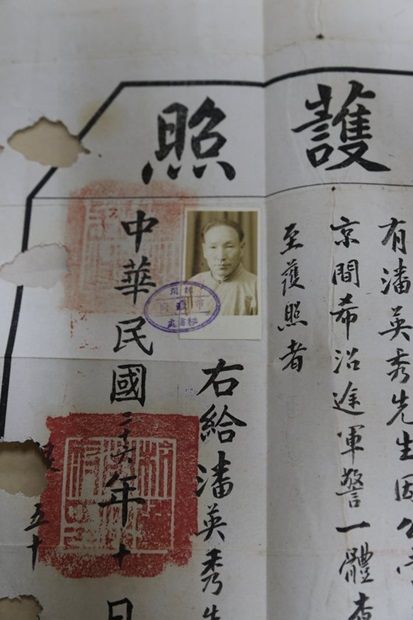 護照
有潘英秀先生因公
京間希沿途軍警一體查
至護照者
右給潘英秀先
中華民國三十六年十 日
五十